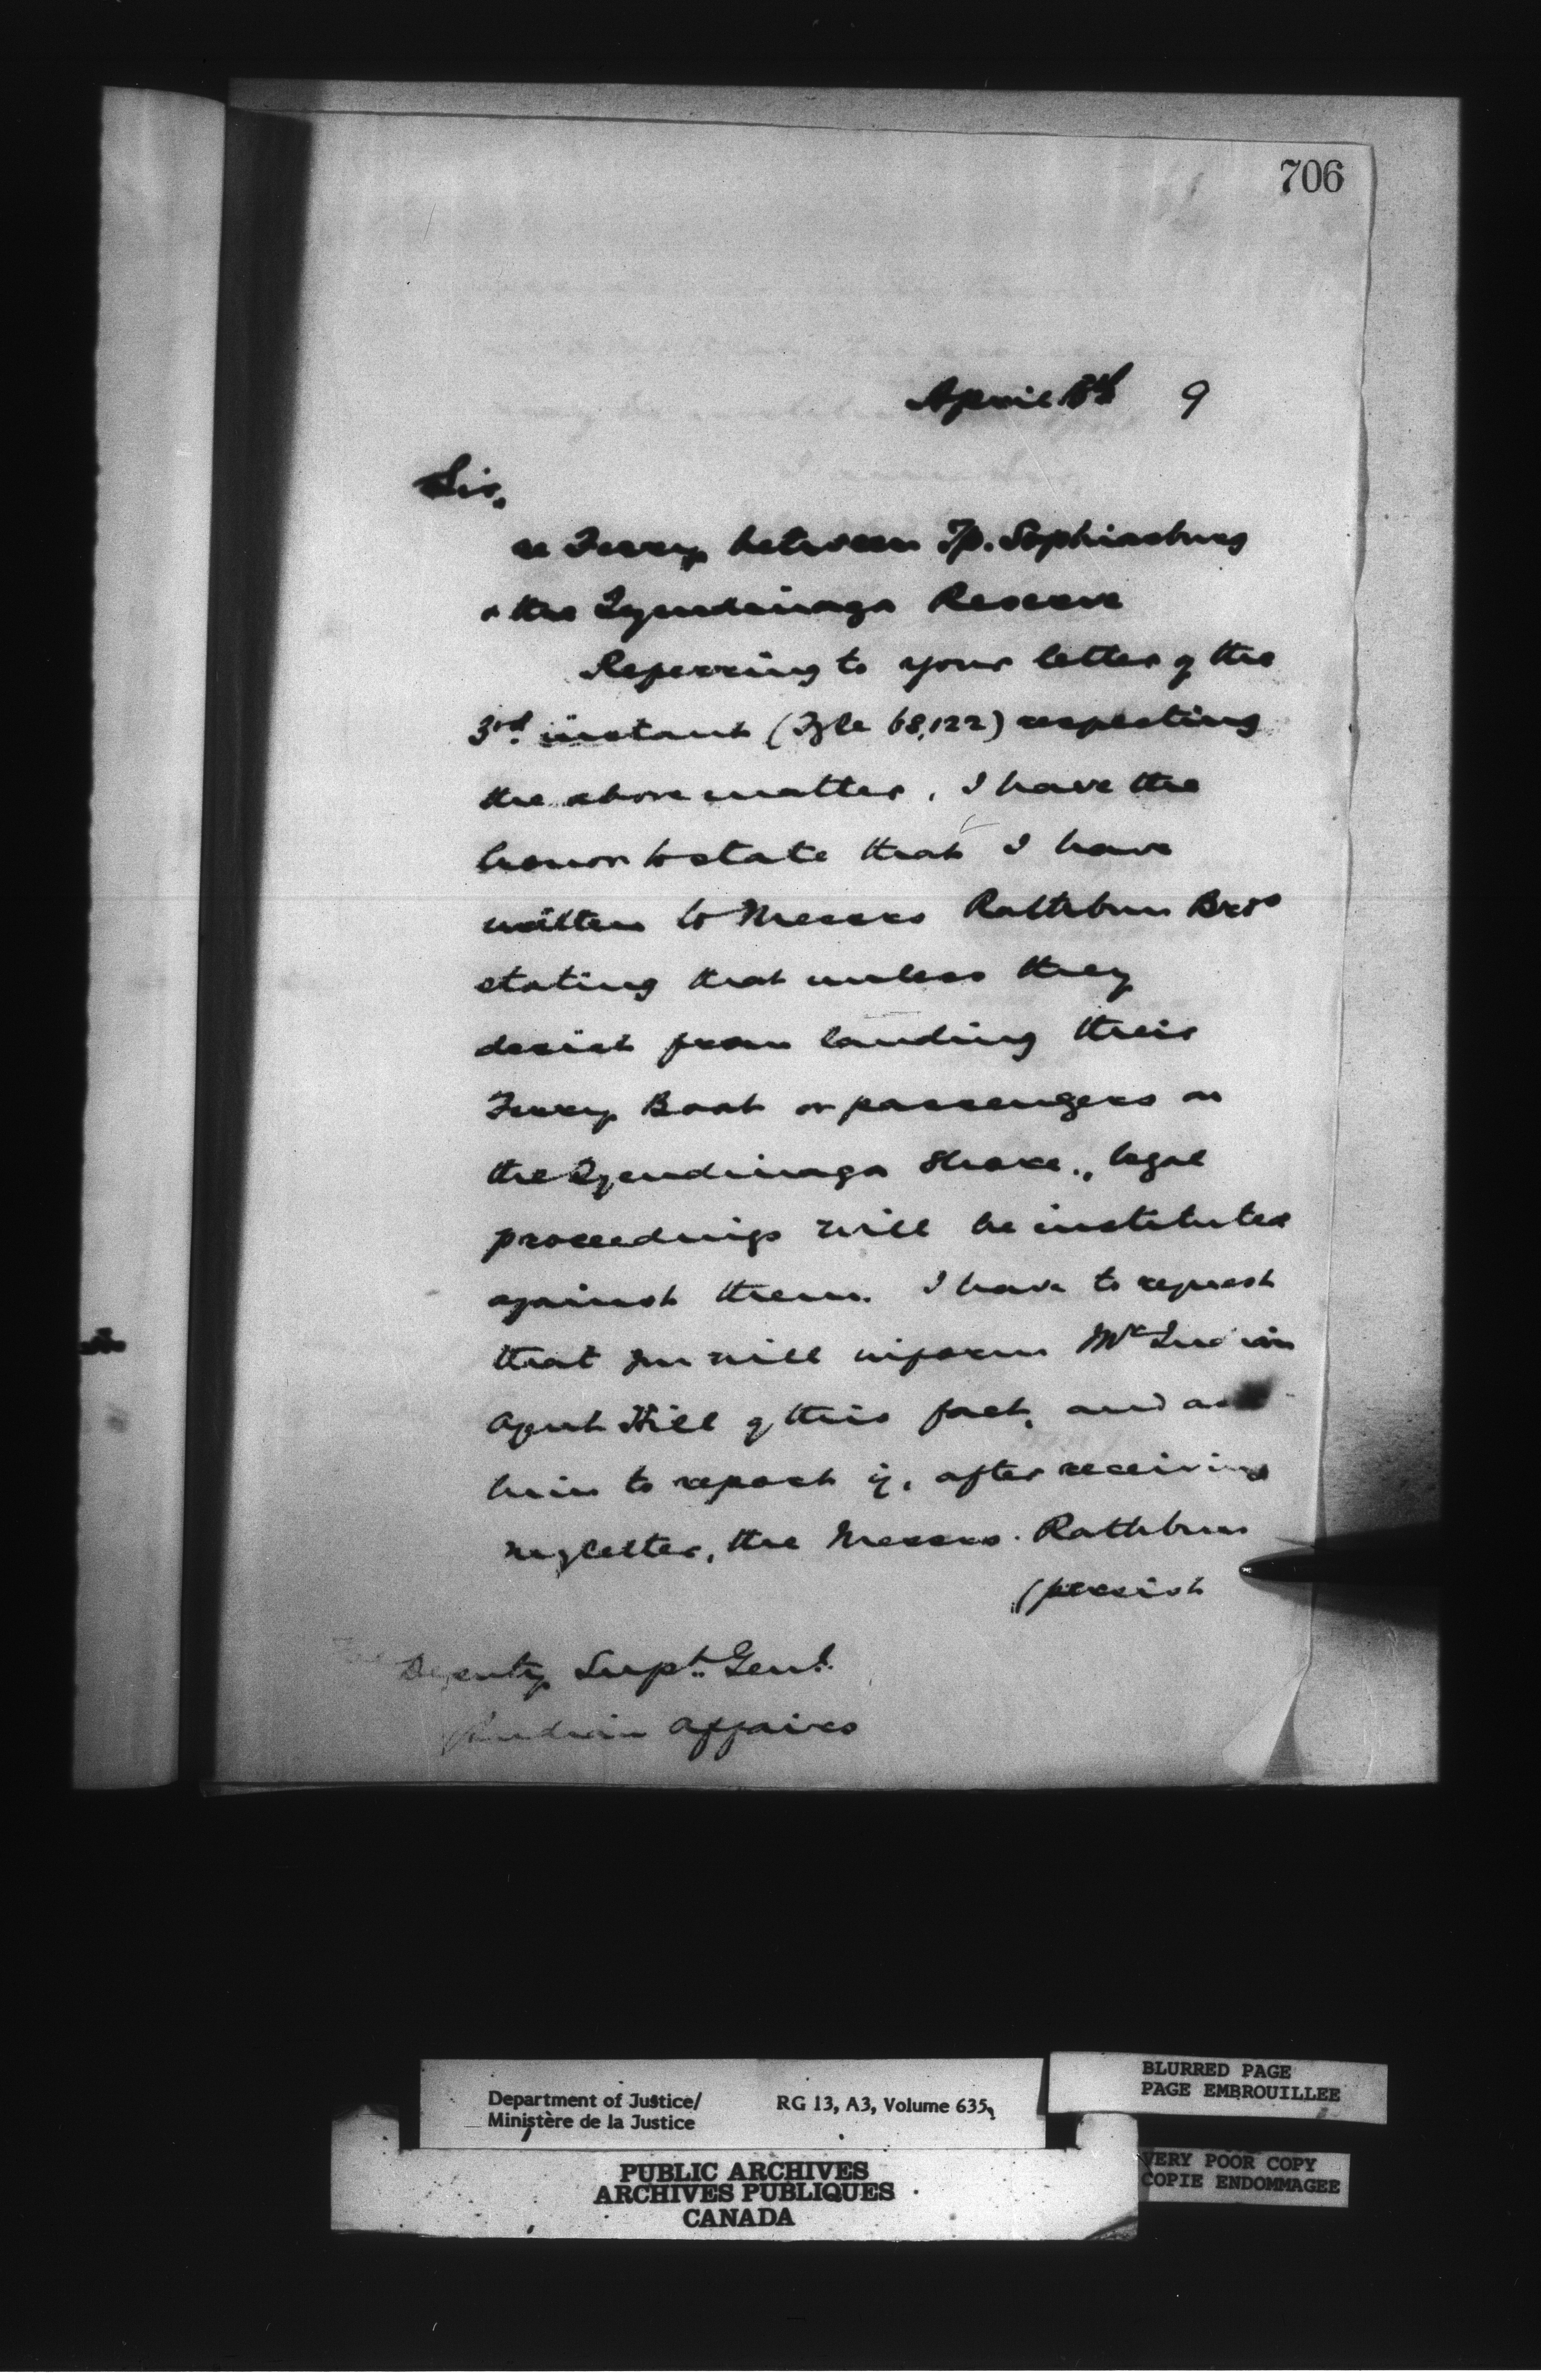 706
April 8th 9
Sir,
re Ferry between Tp. Sophiasburg
& the Tyendinaga Reserve
Referring to your letter of the
3rd. instant (File 68,122) respecting
the above matter, I have the
honor to state that I have
written to Messrs Rathbun Bros
stating that unless they
desist from landing their
Ferry Boat or passengers on
the Tyendinaga Shore, legal
proceedings will be instituted
against them. I have to request
that you will inform Mr Indian
Agent Hill of this fact, and ask
him to report if, after receiving
my letter, the Messrs. Rathbun
(persist
Deputy Supt. Genl.
Indian Affairs
Department of Justice/
Ministère de la Justice
RG 13, A3, Volume 635
BLURRED PAGE
PAGE EMBROUILLEE
VERY POOR COPY
COPIE ENDOMMAGEE
PUBLIC ARCHIVES
ARCHIVES PUBLIQUES
CANADA